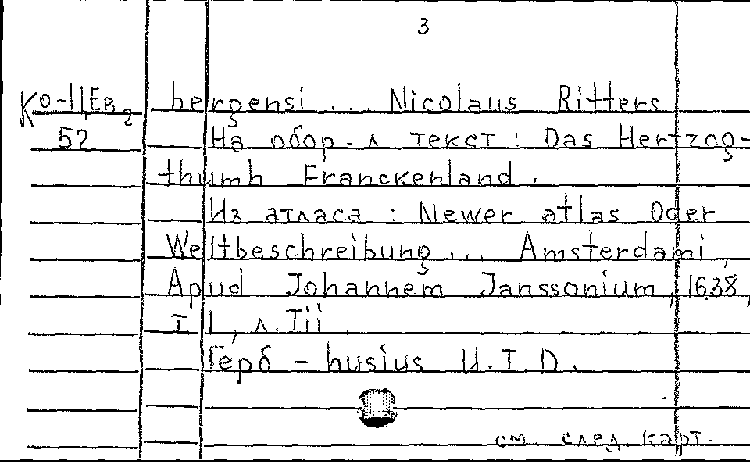 3
Ко-ЦЕв2 bergensi ... Nicolaus Ritters
52 На обор. л текст: Das Hertzog-
thumb Franckenland.
Из атласа: Newer atlas Oder
Weltbeschreibung ... Amsterdami,
Apud Johannem Janssonium, 1638,
т I, л. Iii
Герб - husius U.I.D.
см. след. карт.